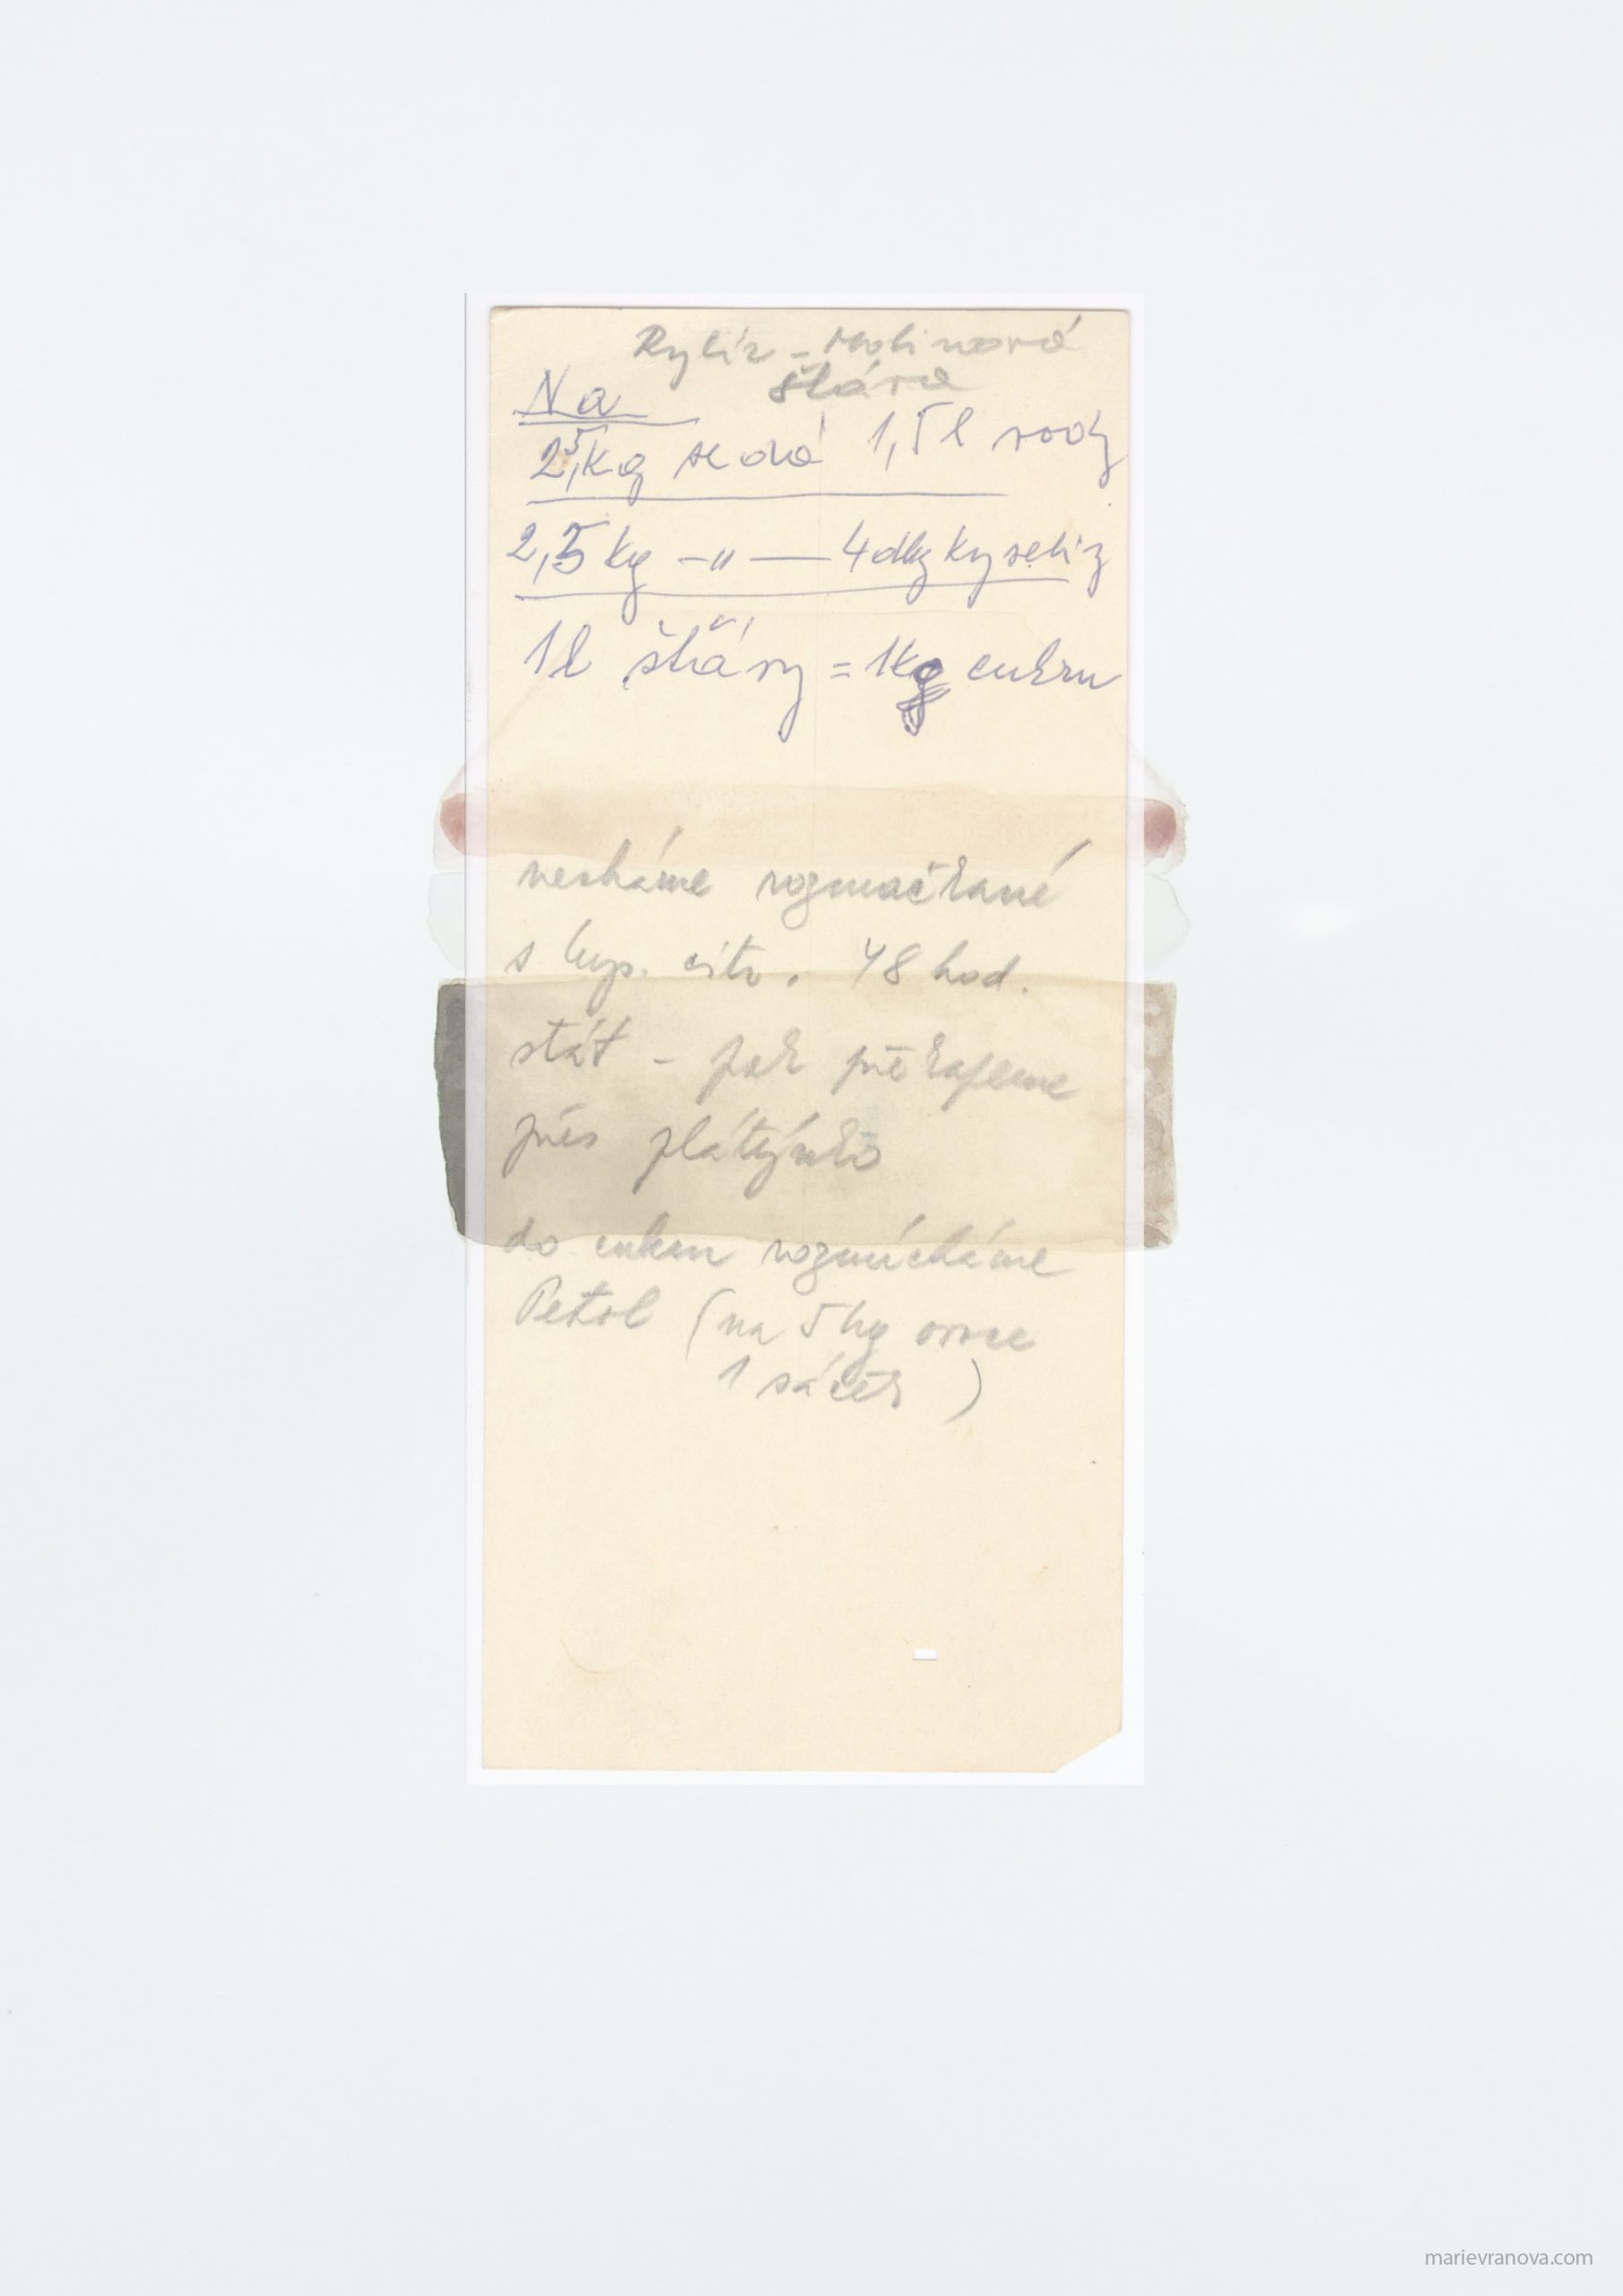 Rybíz - Malinová
šťáva
Na
2,5 kg se dá 1,5 l vody
2,5 kg -"- 4 dkg kyseliny
1l šťávy = 1kg cukru
necháme rozmačkané
s kys. citr. 48 hod.
stát - pak překapeme
přes plátýnko
do cukru rozmícháme
Petol (na 5 kg ovoce
1 sáček)
marievranova.com